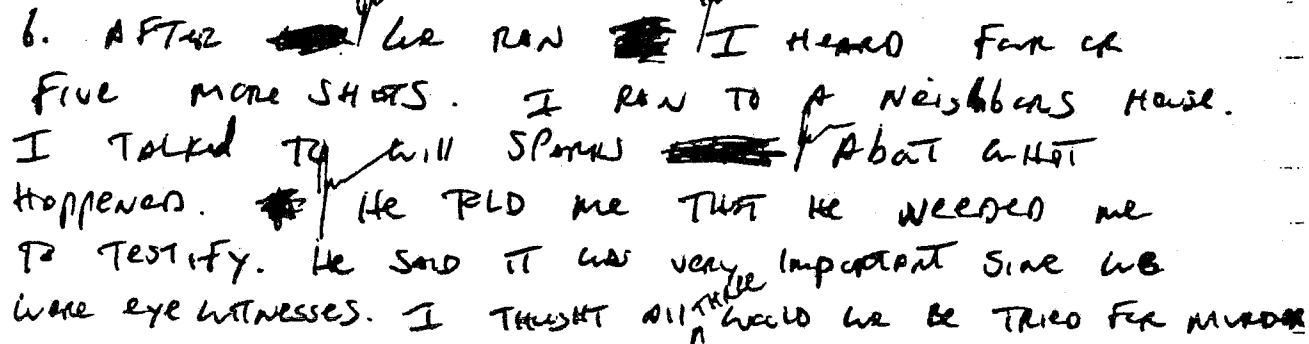 6. AFTER we RAN I HEARD FOUR OR
FIVE MORE SHOTS. I RAN TO A Neighbors House.
I TALKed TO Will SPARKS AboUT WHAT
HAppeneD. He TOLD me THAT He NEEDED me
TO TESTIFY. He SAID IT WAS very ImpORTANT SINCE WE
WERE eye WITNESSES. I THOUGHT All THREE WOULD We BE TRIED FOR MURDER